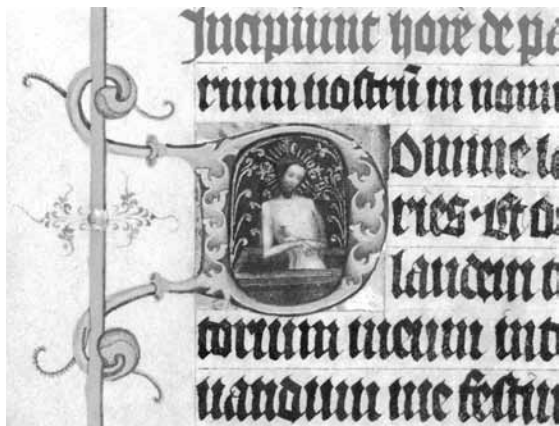 Incipiunt hore de pa
rium nostrū in nomi
Domine la
ries. Et os
laudem t
torium meum inte
uandum me festin